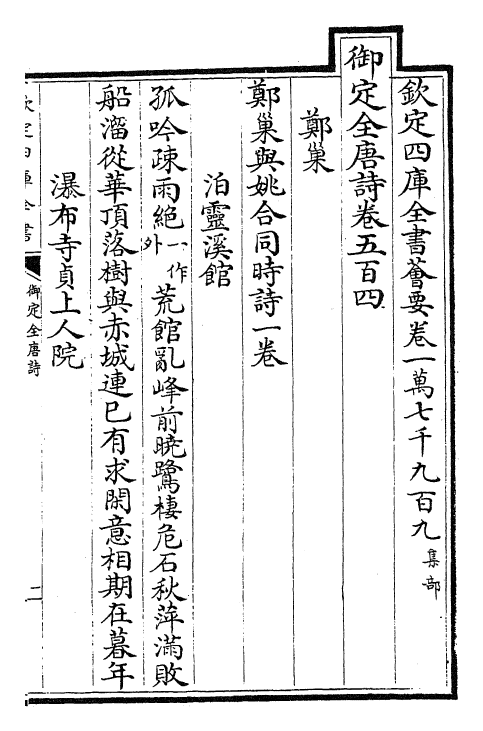 欽定四庫全書薈要卷一萬七千九百九 集部
御定全唐詩卷五百四
鄭巢
鄭巢與姚合同時詩一卷
泊靈溪館
孤吟疎雨絶一作外荒館亂峰前曉鷺棲危石秋萍滿敗
船溜從華頂落樹與赤城連已有求閑意相期在暮年
瀑布寺貞上人院
欽定四庫全書
御定全唐詩
二